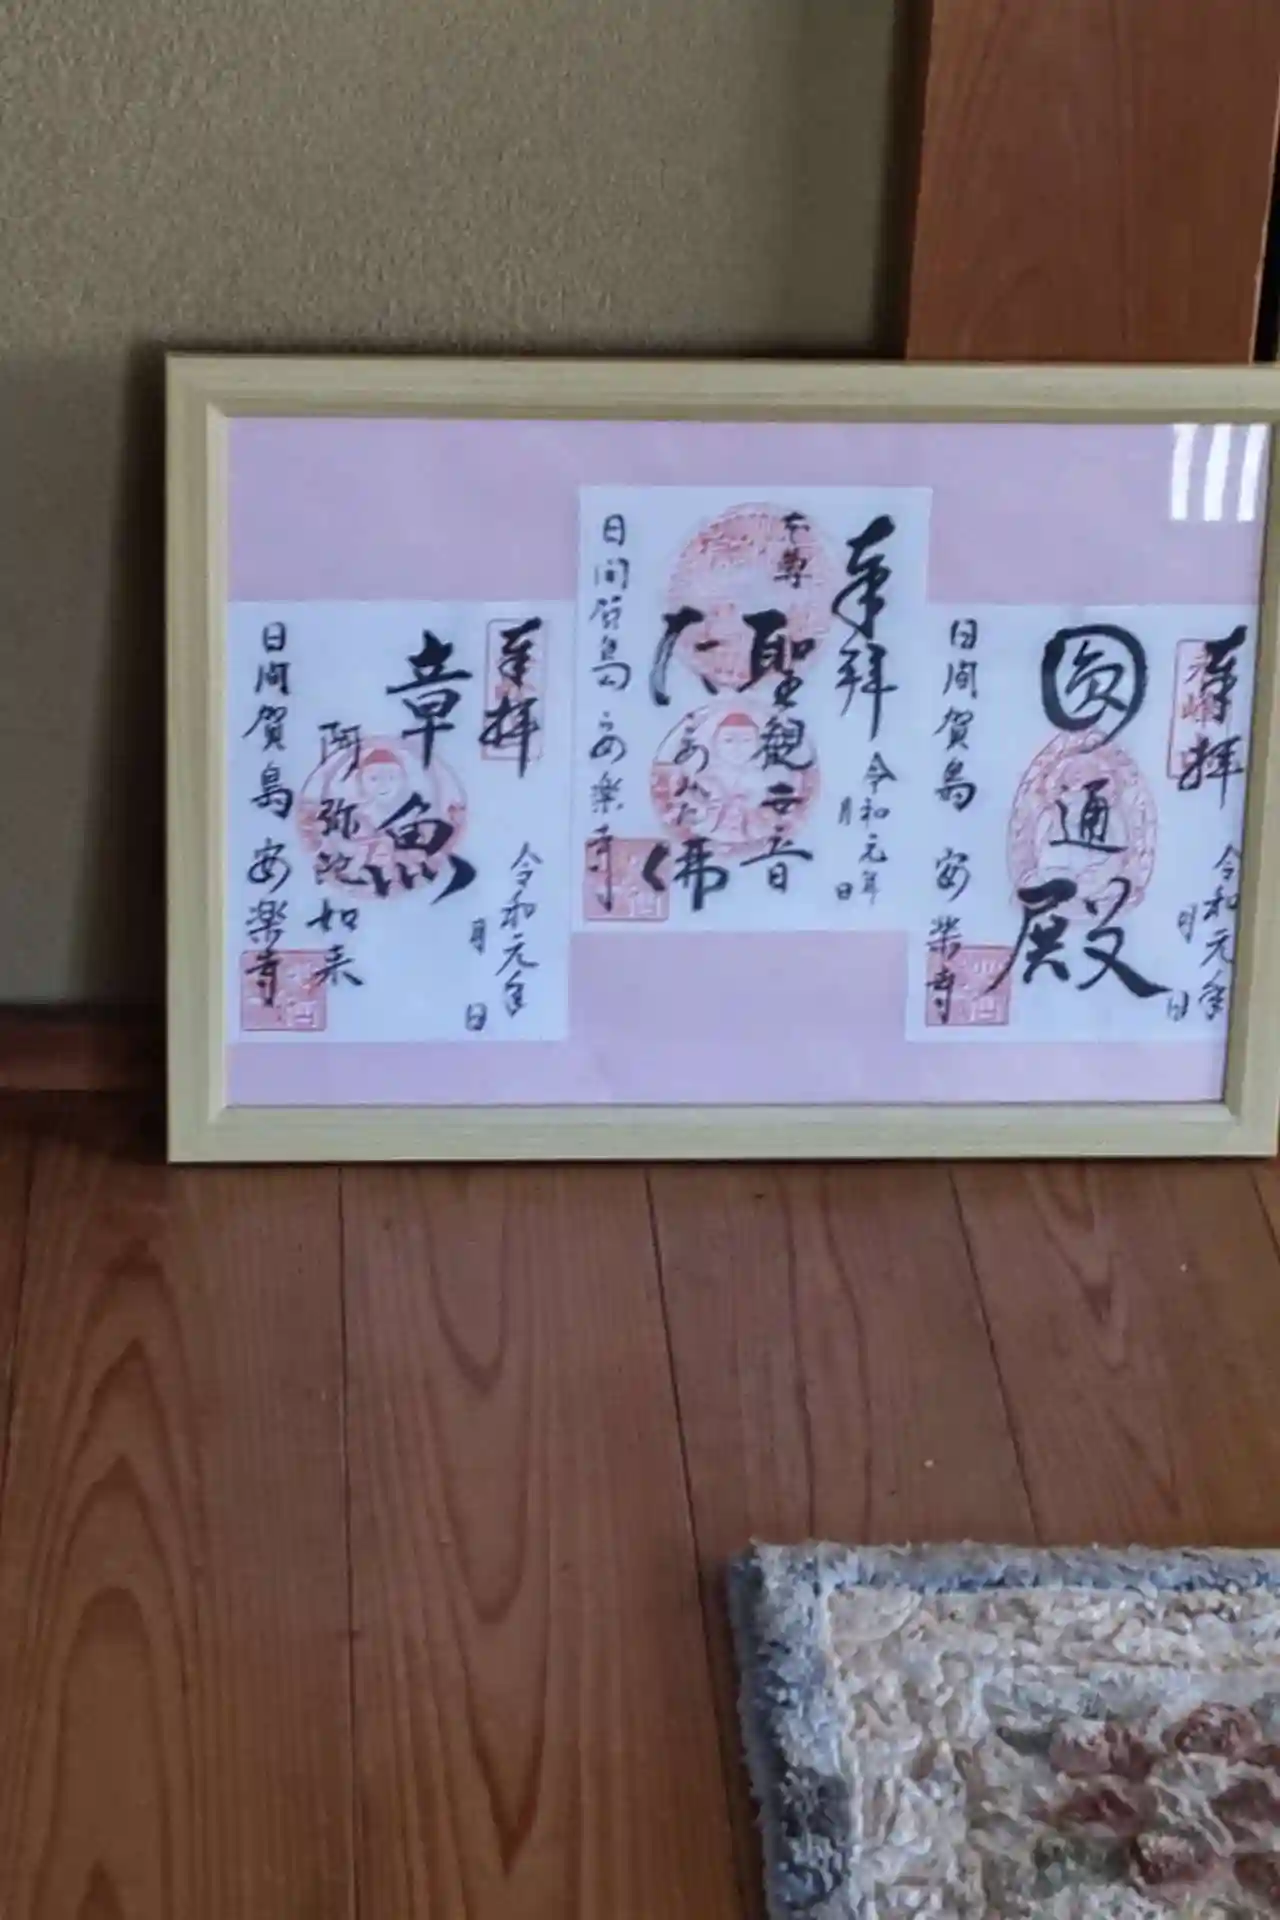 奉拝
令和元年
月
日
圓通殿
日間賀島 安楽寺
奉拝
令和元年
月
日
本尊
聖観世音
日間賀島 安楽寺
奉拝
令和元年
月
日
章魚
阿弥陀如来
日間賀島 安楽寺